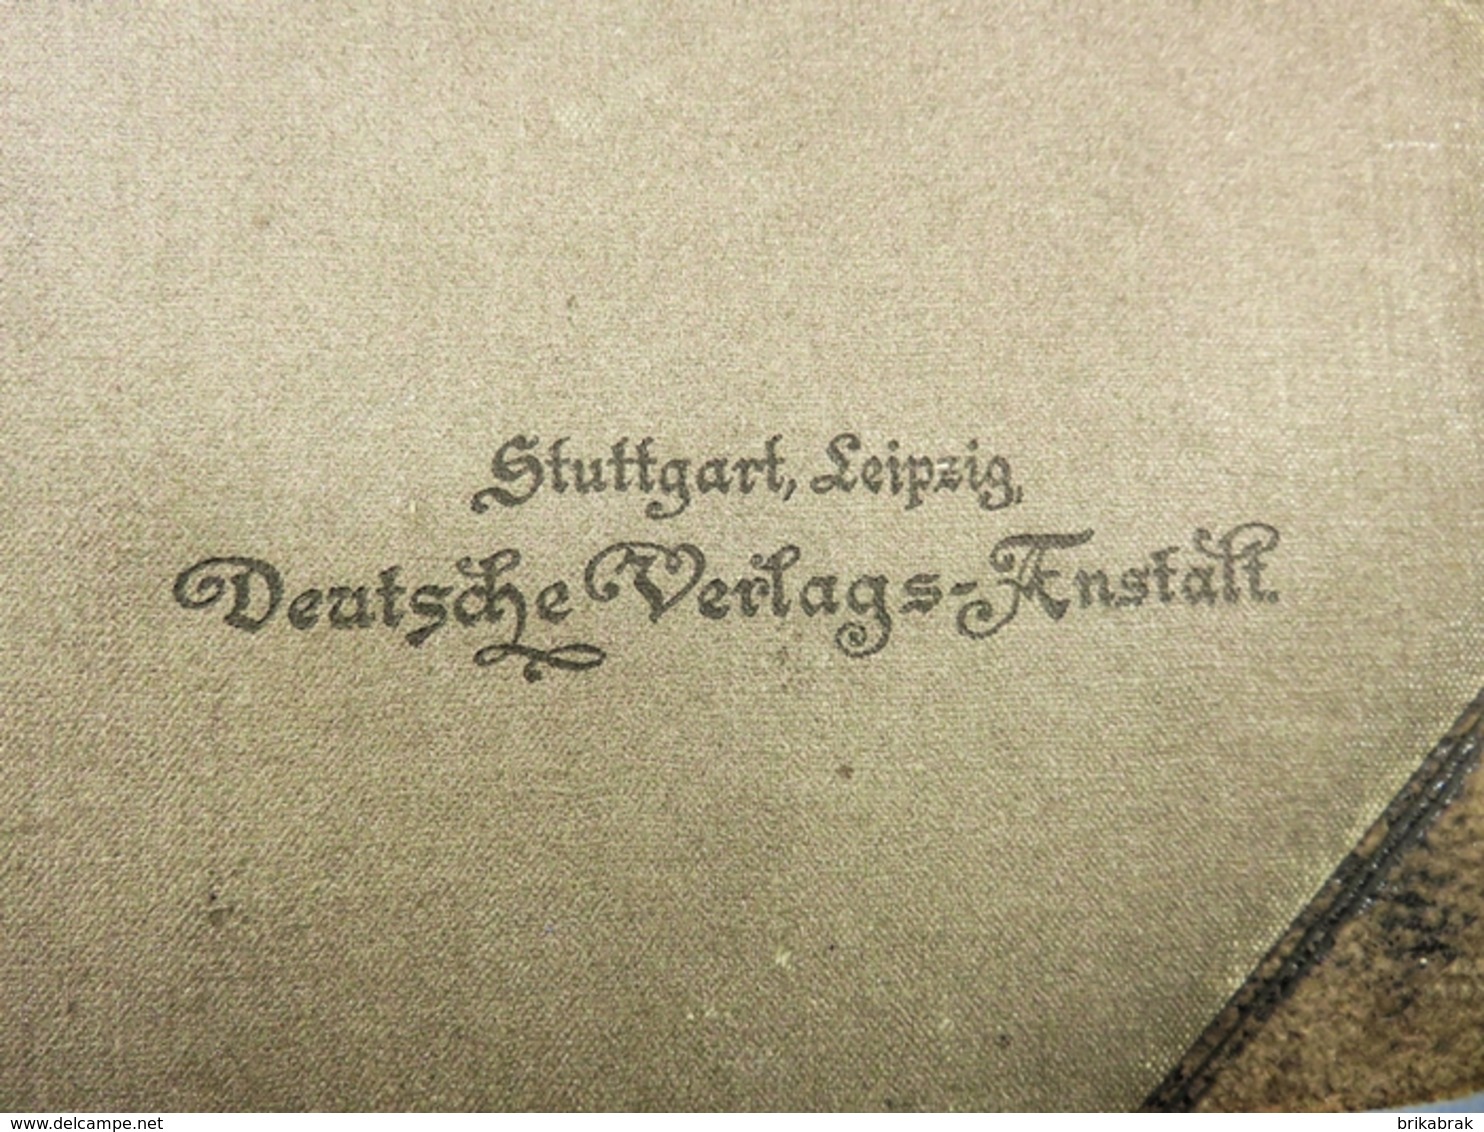 Stuttgart, Leipzig,
Deutsche Verlags-Anstalt.
delcampe.net
brikabrak